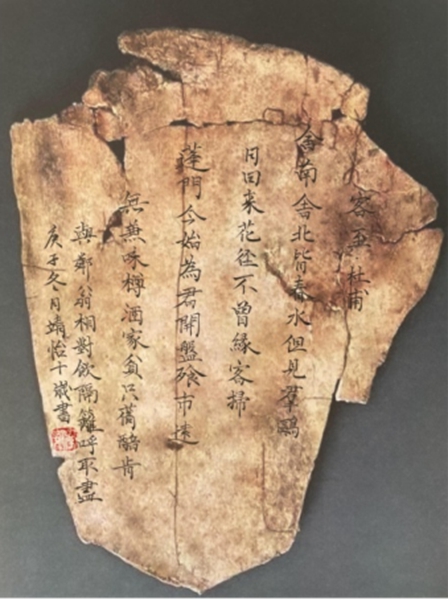 客至 杜甫
舍南舍北皆春水但見羣鷗
日回来花径不曾緣客掃
蓬門今始為君開盤飧市遠
無兼味樽酒家貧只舊醅肯
與鄰翁相對飲隔籬呼取盡
庚子冬月靖怡十歲書